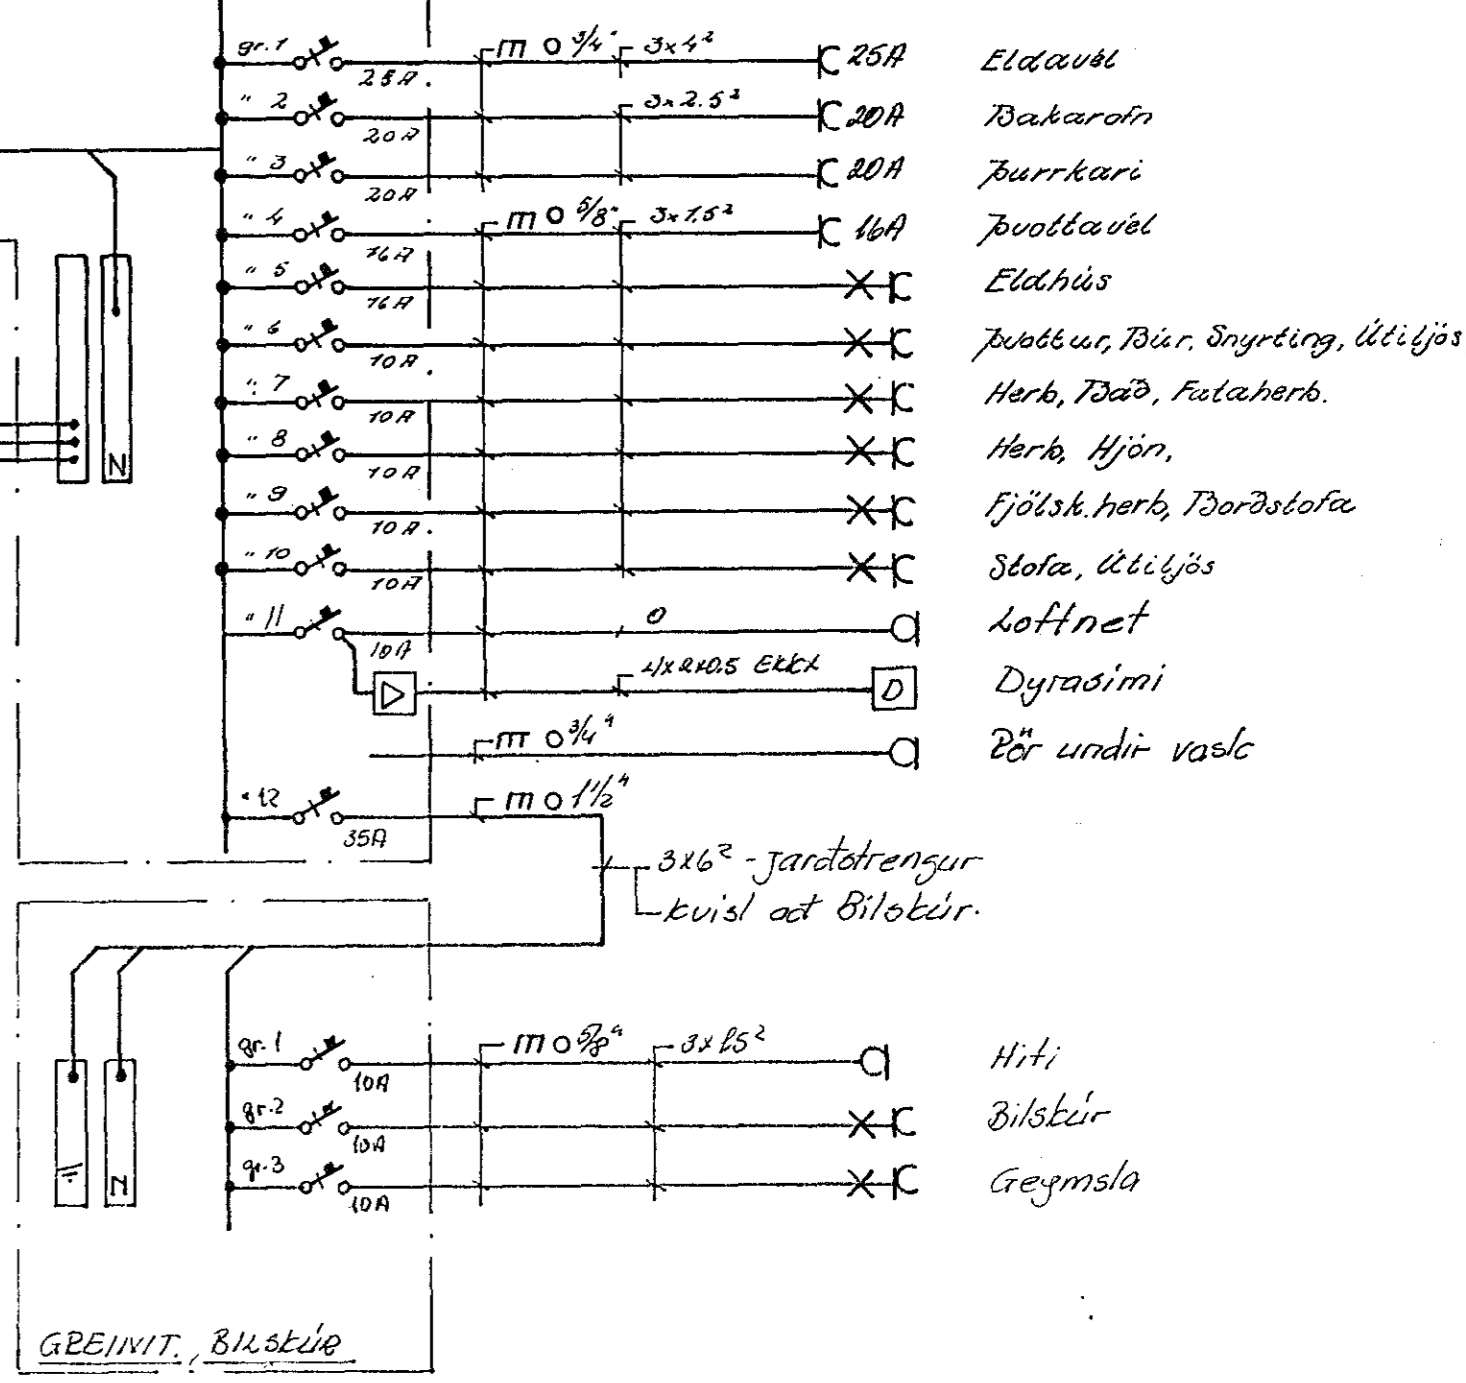 gr.1 25A. m O 3/4" 3x4² 25A Eldavél
" 2 20A 3x2.5² 20A Bakarofn
" 3 20A 20A Þurrkari
" 4 16A m O 5/8" 3x1.5² 16A Þvottavél
" 5 16A Eldhús
" 6 10A. Þvottur, Búr. Snyrting, Útiljós
" 7 10A Herb, Bað, Fataherb.
" 8 10A Herb, Hjón,
" 9 10A. Fjölsk.herb, Borðstofa
" 10 10A Stofa, Útiljós
" 11 10A O Loftnet
4x2x0.5 D Dyrasími
m O 3/4" Rör undir vask
" 12 35A m O 1 1/2"
3x6² - jarðstrengur
kvísl að Bílskúr.
N
gr.1 10A m O 5/8" 3x1.5² Hiti
gr.2 10A Bílskúr
gr.3 10A Geymsla
N
GREINIT., BÍLSKÚR